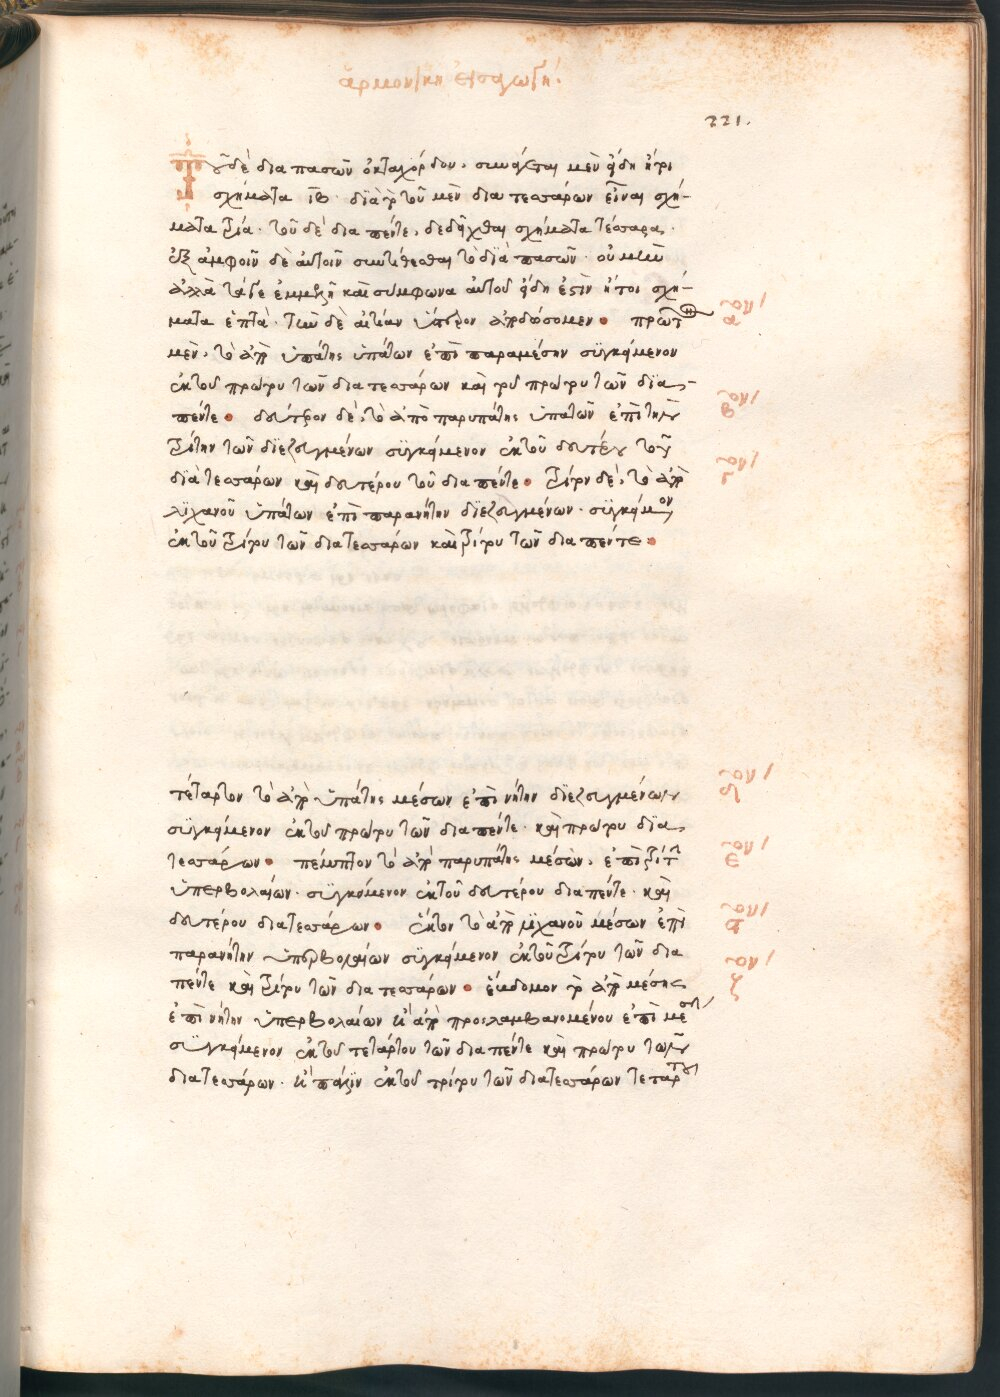 ἁρμονικὴ εἰσαγωγή:
221.
Τοῦ δὲ διὰ πασῶν ὀκταχόρδου, συνάγεται μὲν εἴδη ἤτοι
σχήματα ιβ· διὰ τὸ τοῦ μὲν διὰ τεσσάρων εἶναι σχή-
ματα τρία· τοῦ δὲ διὰ πέντε, δεδεῖχθαι σχήματα τέσσαρα·
ἐξ ἀμφοῖν δὲ αὐτοῖν συντίθεσθαι τὸ διὰ πασῶν· οὐ μὴν
ἀλλὰ τάγε ἐμμελῆ καὶ σύμφωνα αὐτοῦ εἴδη ἐστὶν ἤτοι σχή-
ματα ἑπτά· τὴν δὲ αἰτίαν ὕστερον ἀποδώσομεν· πρῶτον
μὲν, τὸ ἀπὸ ὑπάτης ὑπάτων ἐπὶ παραμέσην συγκείμενον
ἐκ τοῦ πρώτου τῶν διὰ τεσσάρων καὶ τοῦ πρώτου τῶν διὰ
πέντε· δεύτερον δὲ, τὸ ἀπὸ παρυπάτης ὑπάτων ἐπὶ τὴν
τρίτην τῶν διεζευγμένων συγκείμενον ἐκ τοῦ δευτέρου τοῦ
διὰ τεσσάρων καὶ δευτέρου τοῦ διὰ πέντε· τρίτον δὲ, τὸ ἀπὸ
λιχανοῦ ὑπάτων ἐπὶ παρανήτην διεζευγμένων· συγκείμενον
ἐκ τοῦ τρίτου τῶν διὰ τεσσάρων καὶ τρίτου τῶν διὰ πέντε·
τέταρτον τὸ ἀπὸ ὑπάτης μέσων ἐπὶ νήτην διεζευγμένων
συγκείμενον ἐκ τοῦ πρώτου τῶν διὰ πέντε· καὶ πρώτου διὰ
τεσσάρων· πέμπτον τὸ ἀπὸ παρυπάτης μέσων, ἐπὶ τρίτην
ὑπερβολαίων· συγκείμενον ἐκ τοῦ δευτέρου διὰ πέντε· καὶ
δευτέρου διὰ τεσσάρων· ἕκτον τὸ ἀπὸ λιχανοῦ μέσων ἐπὶ
παρανήτην ὑπερβολαίων συγκείμενον ἐκ τοῦ τρίτου τῶν διὰ
πέντε καὶ τρίτου τῶν διὰ τεσσάρων· ἕβδομον τὸ ἀπὸ μέσης
ἐπὶ νήτην ὑπερβολαίων ἢ ἀπὸ προσλαμβανομένου ἐπὶ μέσην
συγκείμενον ἐκ τοῦ τετάρτου τῶν διὰ πέντε καὶ πρώτου τῶν
διὰ τεσσάρων· ἢ πάλιν ἐκ τοῦ τρίτου τῶν διὰ τεσσάρων τετάρτου
α
β
γ
δ
ε
ζ